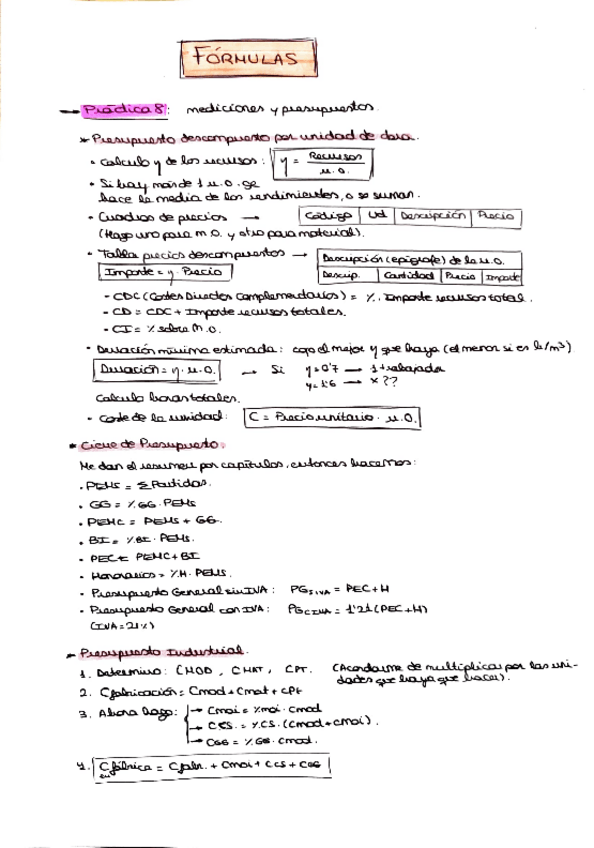 FÓRMULAS
Práctica 8: mediciones y presupuestos.
* Presupuesto descompuesto por unidad de obra.
• Calculo y de los recursos: y = Recursos / u.o.
• Si hay más de 1 u.o. se
hace la media de los rendimientos, o se suman.
• Cuadros de precios → Código | Ud | Descripción | Precio
(Hago uno para m.o. y otro para material).
• Tabla precios descompuestos → Descripción (epígrafe) de la u.o.
Importe = y · Precio Descrip. | Cantidad | Precio | Importe
- CDC (Costes Directos Complementarios) = %. Importe recursos total.
- CD = CDC + Importe recursos totales.
- CI = % sobre m.o.
• Duración mínima estimada: cojo el mejor y que haya (el menor si es h/m³)
Duración = y · u.o. → Si y = 0'7 → 1 trabajador
y = 1'6 → x ??
Calculo horas totales.
• Coste de la unidad: C = Precio unitario · u.o.
* Cierre de Presupuesto.
Me dan el resumen por capítulos, entonces hacemos:
• PEMS = Σ Partidas.
• GG = %GG · PEMS
• PEMC = PEMS + GG.
• BI = %BI · PEMS.
• PEC = PEMC + BI
• Honorarios = %H · PEMS.
• Presupuesto General sin IVA: PGSIVA = PEC + H
• Presupuesto General con IVA: PGCIVA = 1'21 (PEC + H)
(IVA = 21%)
* Presupuesto Industrial.
1. Determino: CMOD, CMAT, CPT. (Acordarme de multiplicar por las uni-
dades que haya que hacer).
2. Cfabricación = Cmod + Cmat + CPt
3. Ahora hago: → Cmoi = %moi · Cmod
→ CCS = %CS · (Cmod + Cmoi).
→ CGG = %GG · Cmod.
4. C fábrica = Cfabr. + Cmoi + CCS + CGG